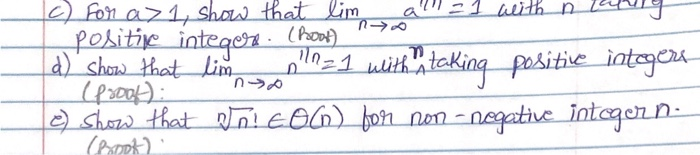 c) For a > 1, show that lim n→∞ a^1/n = 1 with n taking
positive integers. (Proof)
d) Show that lim n→∞ n^1/n = 1 with n taking positive integers
(Proof):
e) Show that ⁿ√n! ∈ Θ(n) for non-negative integer n.
(Proof):